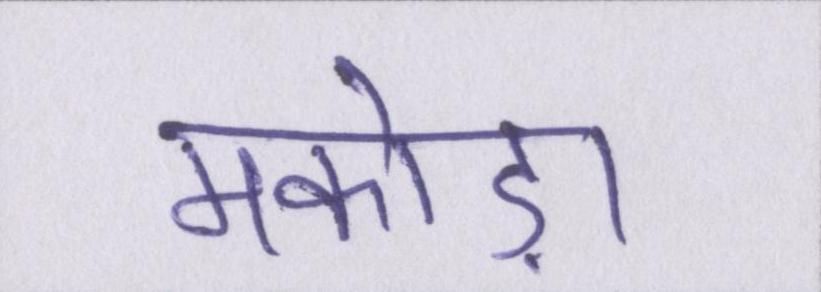 मकोड़ा